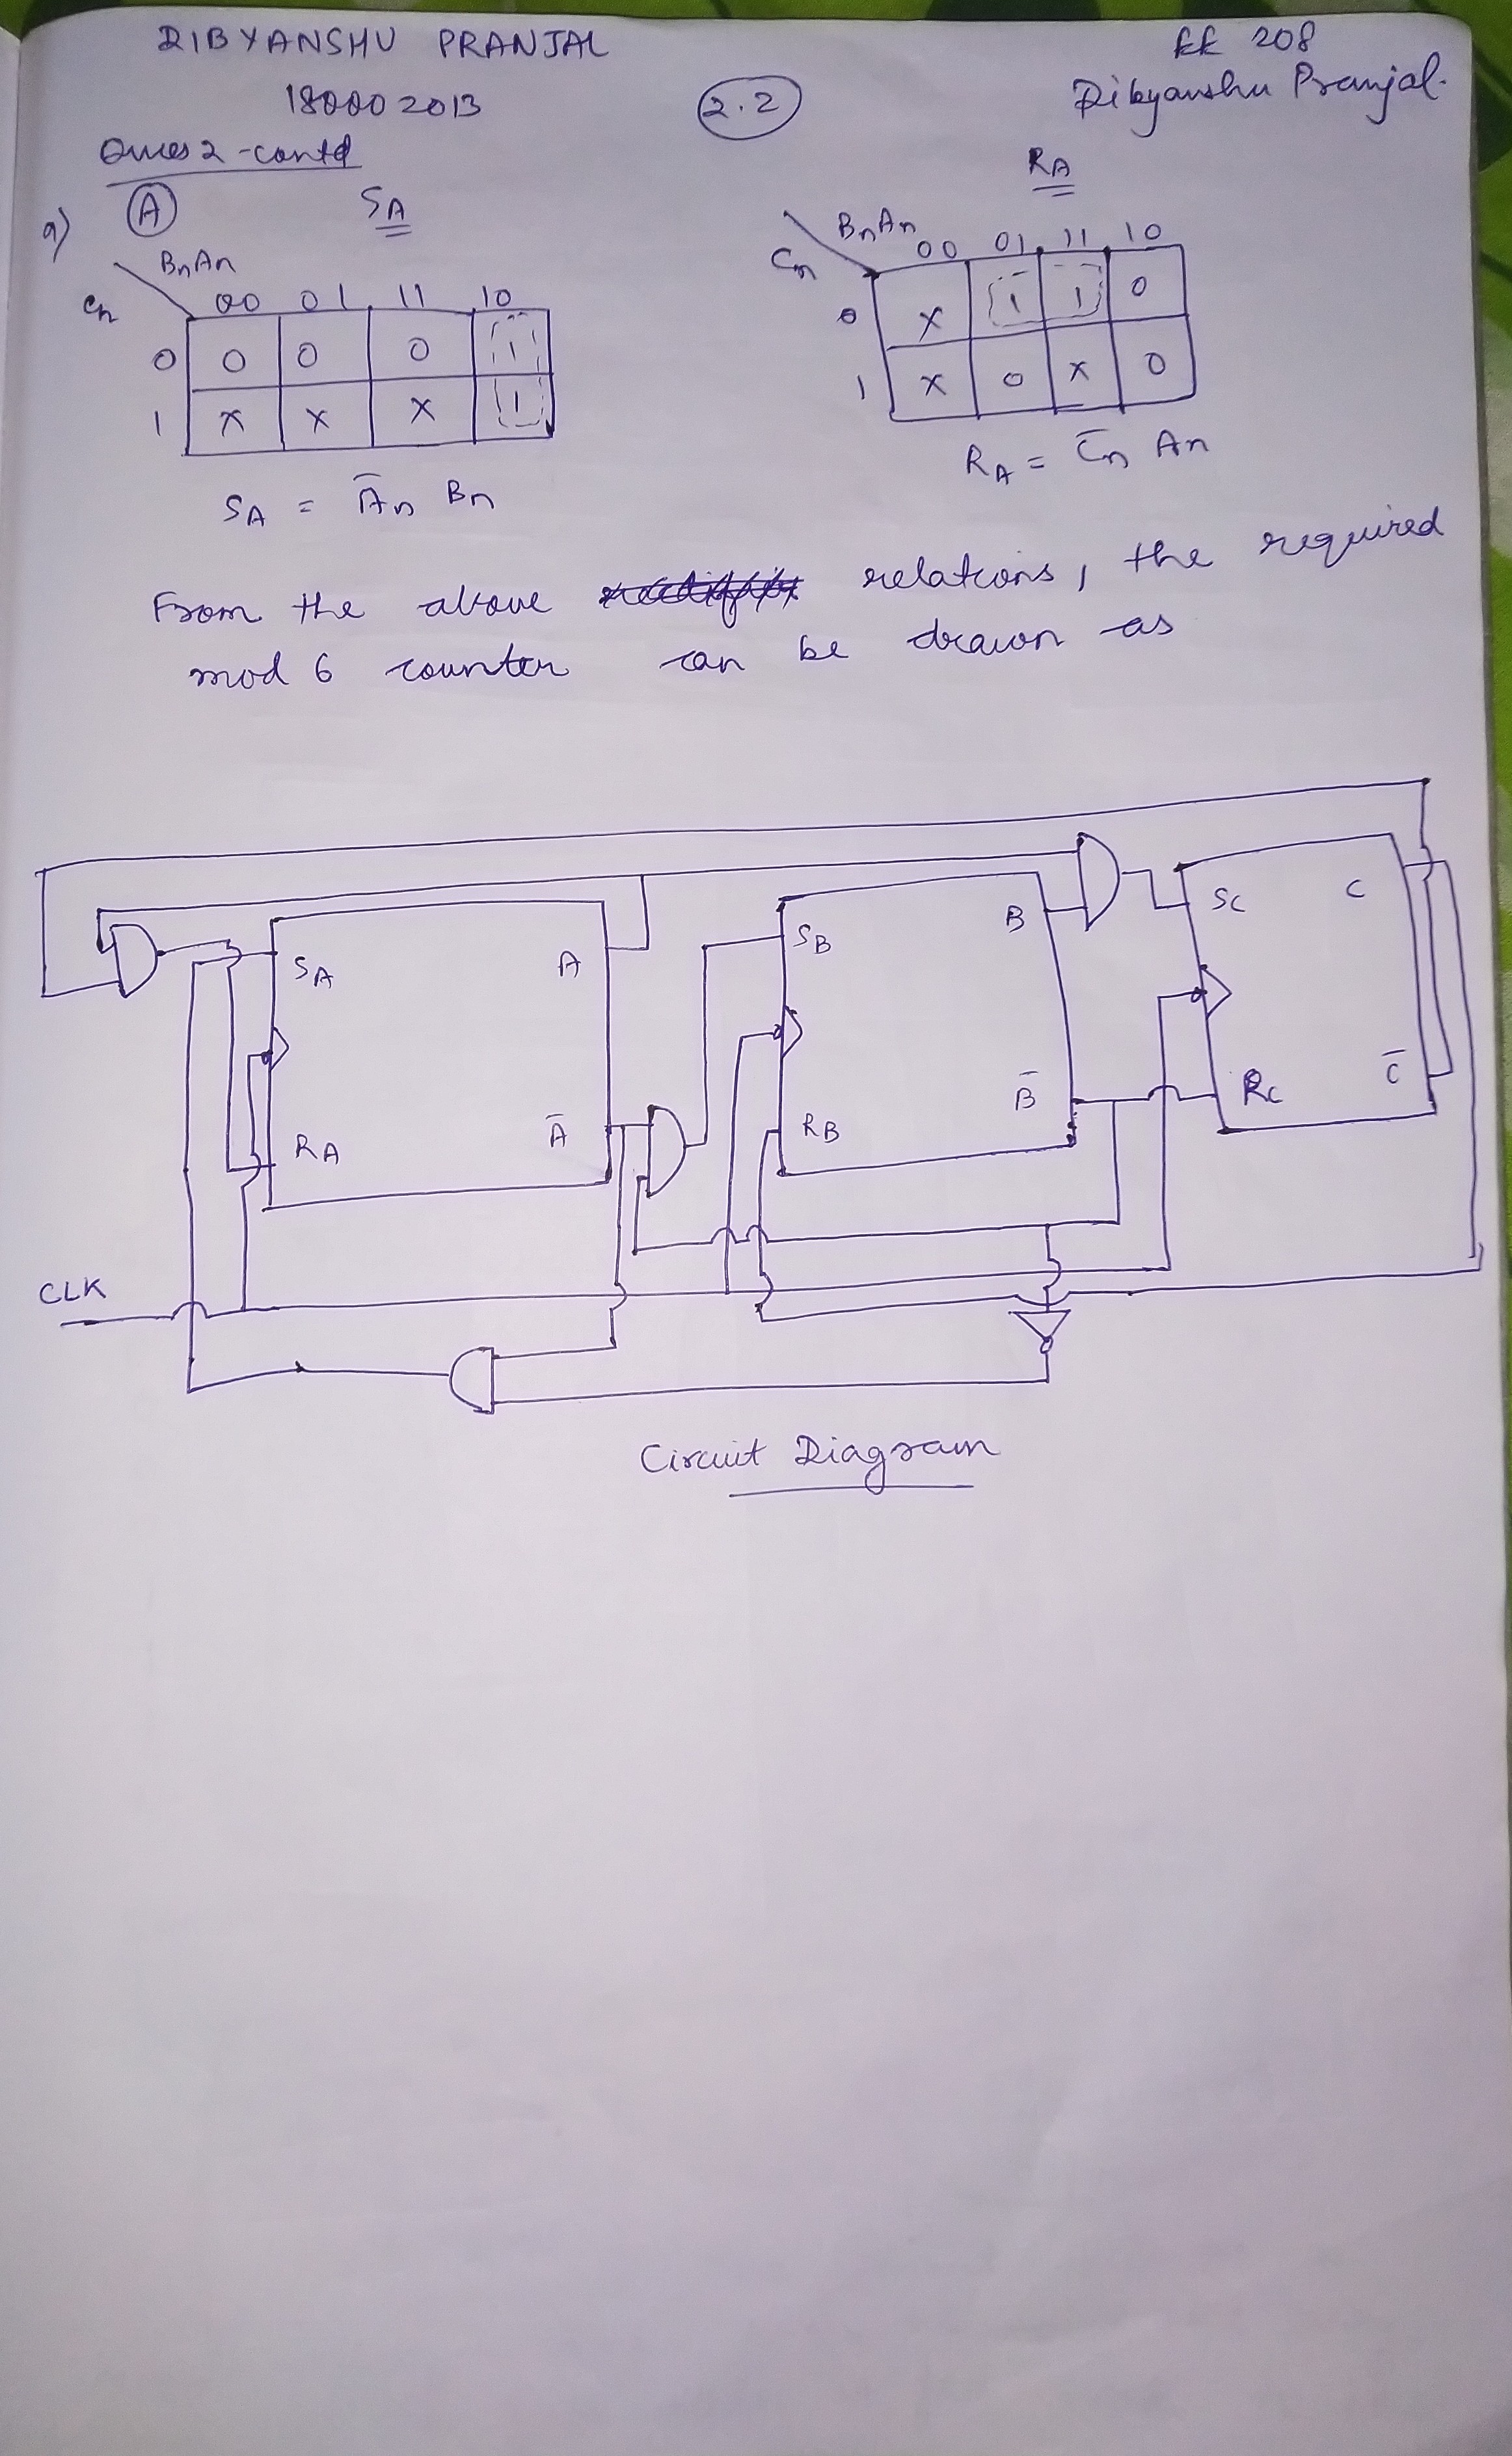 DIBYANSHU PRANJAL
EE 208
180002013
2.2
Dibyanshu Pranjal.
Ques 2 -contd
a)
A
SA
RA
BnAn
Cn
00 01 11 10
0 0 0 0 1
1 X X X 1
SA = Ān Bn
BnAn
Cn
00 01 11 10
0 X 1 1 0
1 X 0 X 0
RA = C̄n An
From the above relations, the required
mod 6 counter can be drawn as
SA A
SB B
SC C
RA Ā
RB B̄
RC C̄
CLK
Circuit Diagram